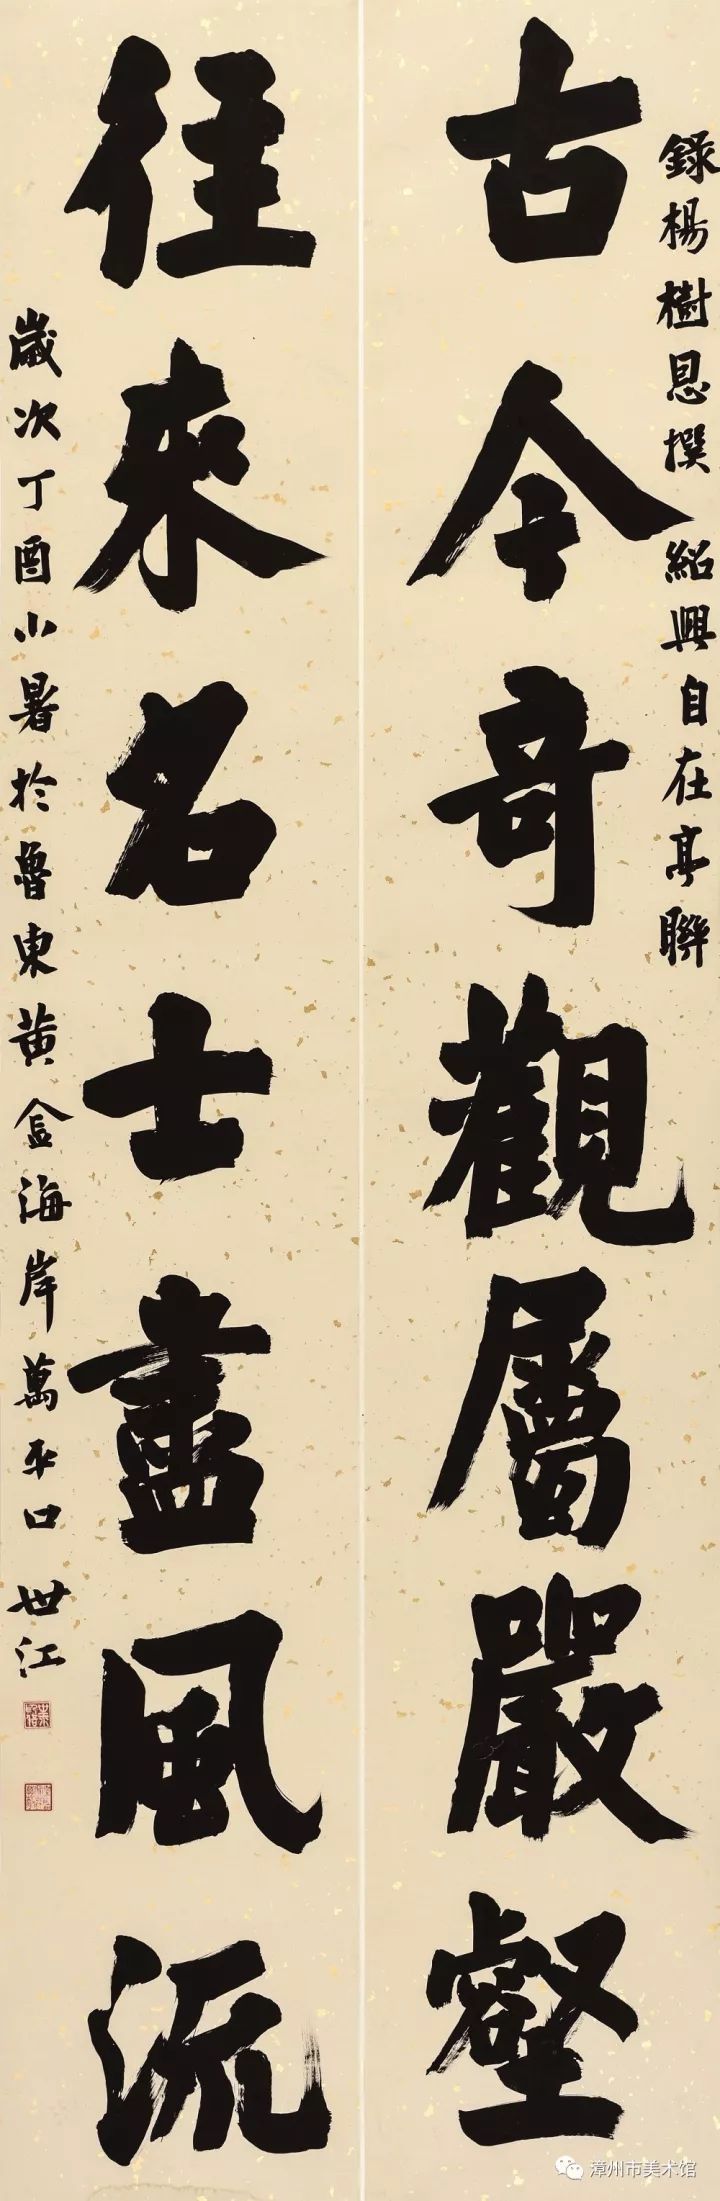 錄楊樹恩撰 紹興自在亭聯
古今奇觀屬嚴壑
往來名士盡風流
歲次丁酉小暑於魯東黃金海岸萬平口 世江
漳州市美术馆